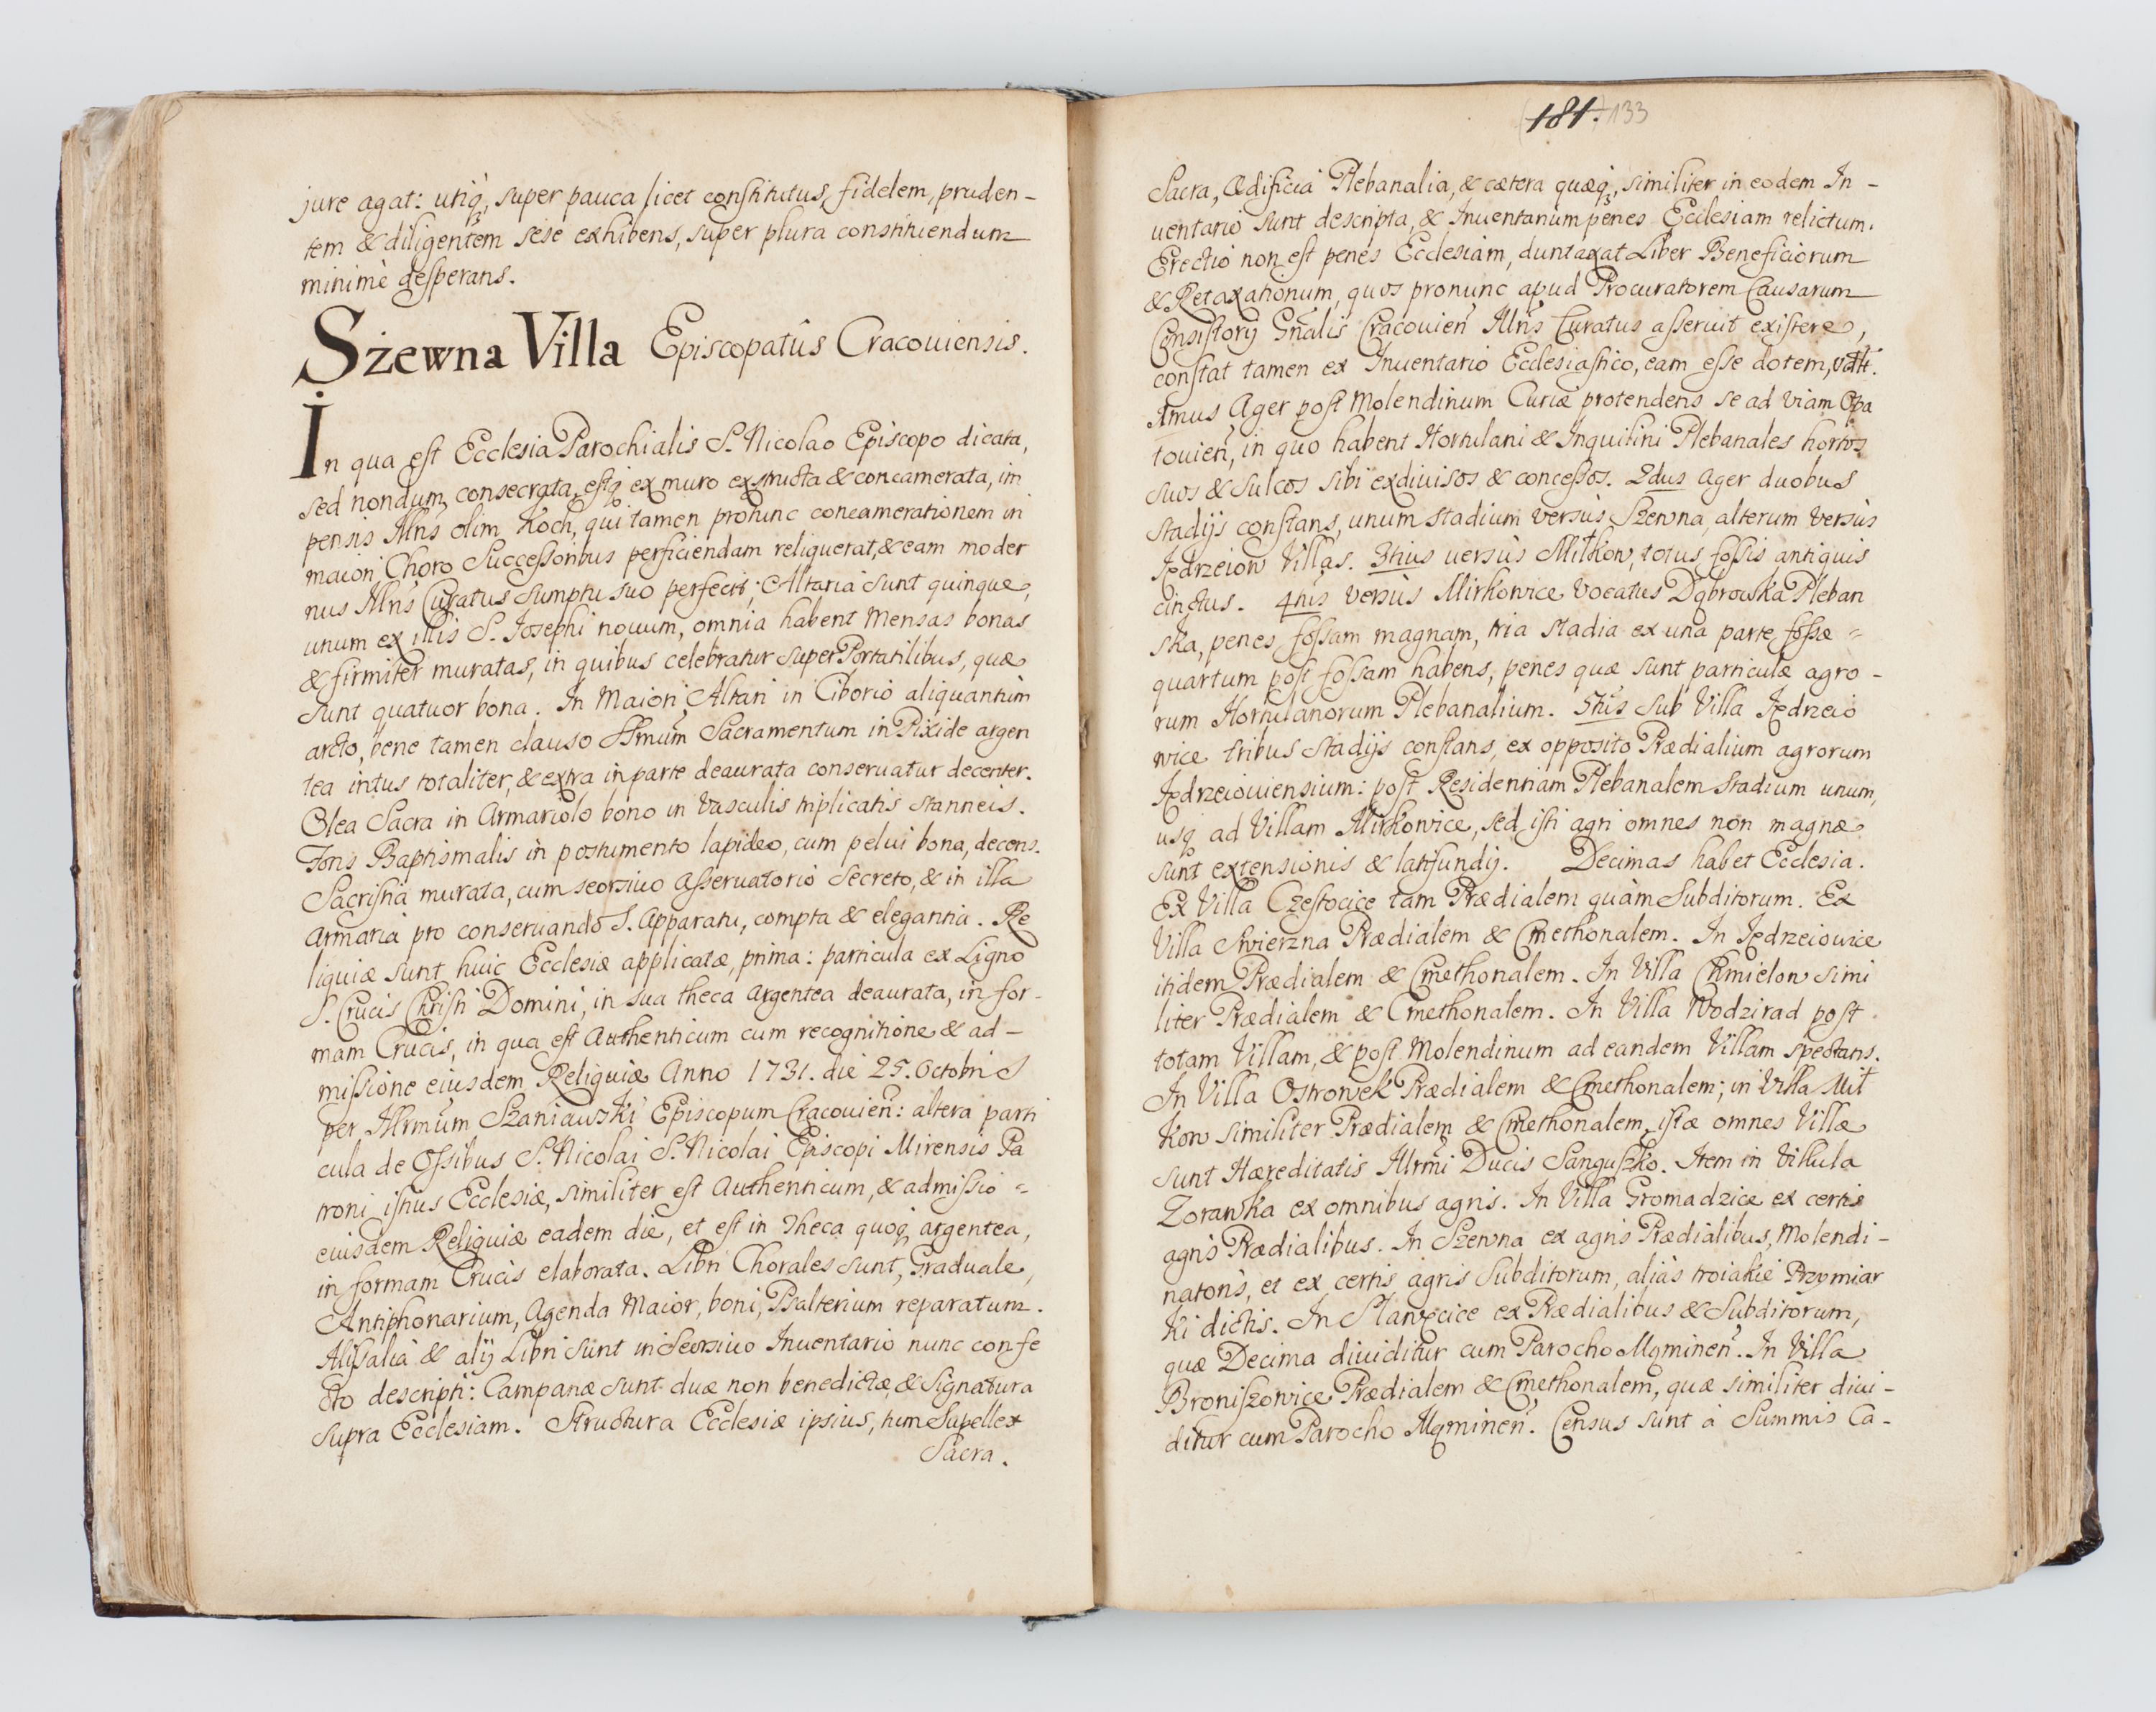 jure agat: utiq, super pauca licet constitutus, fidelem, pruden-
tem & diligentem sese exhibens, super plura constituendum
minimè desperans.
Szewna Villa Episcopatûs Cracouiensis.
In qua est Ecclesia Parochialis S. Nicolao Episcopo dicata,
sed nondum consecrata, estq ex muro exstructa & concamerata, im
pensis Illris olim Koch, qui tamen pronunc concamerationem in
maiori Choro Successoribus perficiendam reliquerat, & eam moder
nus Illris Curatus Sumptu suo perfecit; Altaria sunt quinque,
unum ex illis S. Josephi nouum, omnia habent Mensas bonas
& firmiter muratas, in quibus celebratur super Portatilibus, quæ
sunt quatuor bona. In Maiori Altari in Ciborio aliquantùm
arcto, bene tamen clauso SSmum Sacramentum in Pixide argen
tea intus totaliter, & extra in parte deaurata conseruatur decenter.
Olea Sacra in Armariolo bono in Vasculis triplicatis stanneis.
Fons Baptismalis in postumento lapideo, cum pelui bona, decens.
Sacristia murata, cum seorsiuo Asseruatorio Secreto, & in illa
Armaria pro conseruando S. Apparatu, compta & elegantia. Re
liquiæ sunt huic Ecclesiæ applicatæ, prima: particula ex Ligno
S. Crucis Christi Domini, in sua theca Argentea deaurata, in for-
mam Crucis, in qua est Authenticum cum recognitione & ad-
missione eiusdem Reliquiæ Anno 1731. die 25. Octobris
per Illrmum Szaniawski Episcopum Cracouien: altera parti
cula de Ossibus S. Nicolai S. Nicolai Episcopi Mirensis Pa
troni istius Ecclesiæ, similiter est Authenticum, & admissio =
eiusdem Reliquiæ eadem die, et est in Theca quoq argentea,
in formam Crucis elaborata. Libri Chorales sunt, Graduale,
Antiphonarium, Agenda Maior, boni, Psalterium reparatum.
Missalia & alij Libri sunt in seorsiuo Inuentario nunc confe
cto descripti: Campanæ sunt duæ non benedictæ, & Signatura
supra Ecclesiam. Structura Ecclesiæ ipsius, tum Supellex
Sacra.
(181.) 133
Sacra, Ædificia Plebanalia, & cætera quæq, similiter in eodem In-
uentario sunt descripta, & Inuentarium penes Ecclesiam relictum.
Erectio non est penes Ecclesiam, duntaxat Liber Beneficiorum
& Retaxationum, quos pronunc apud Procuratorem Causarum
Consistorij Gnalis Cracouien Illris Curatus asseruit existere,
constat tamen ex Inuentario Ecclesiastico, eam esse dotem,
1mus Ager post Molendinum Curiæ protendens se ad viam Opa
touien, in quo habent Hortulani & Inquilini Plebanales hortos
suos & sulcos sibi exdiuisos & concessos. 2dus Ager duobus
Stadijs constans, unum stadium versùs Szewna, alterum versùs
Jędrzeiow Villas. 3tius uersùs Miłkow, totus fossis antiquis
cinctus. 4tus versùs Mirkowice vocatus Dąbrowka Pleban
ska, penes fossam magnam, tria stadia ex una parte fossæ =
quartum post fossam habens, penes quæ sunt particulæ agro-
rum Hortulanorum Plebanalium. 5tus sub Villa Jędrzeio
wice tribus Stadijs constans, ex opposito Prædialium agrorum
Jędrzeiouiensium: post Residentiam Plebanalem stadium unum,
usq ad Villam Mirkowice, sed isti agri omnes non magnæ
sunt extensionis & latifundij. Decimas habet Ecclesia.
Ex Villa Czestocice tam Prædialem quàm Subditorum. Ex
Villa Swierzna Prædialem & Cmethonalem. In Jędrzeiowice
itidem Prædialem & Cmethonalem. In Villa Chmielow simi
liter Prædialem & Cmethonalem. In Villa Wodzirad post
totam Villam, & post Molendinum ad eandem Villam spectans.
In Villa Ostrowek Prædialem & Cmethonalem; in Villa Mił
kow similiter Prædialem & Cmethonalem, istæ omnes Villæ
sunt Hæreditatis Illrmi Ducis Sanguszko. Item in Villula
Zorawka ex omnibus agris. In Villa Gromadzice ex certis
agris Prædialibus. In Szewna ex agris Prædialibus, Molendi-
natoris, et ex certis agris Subditorum, aliàs troiakie Przymiar
ki dictis. In Stawęcice ex Prædialibus & Subditorum,
quæ Decima diuiditur cum Parocho Mominen. In Villa
Broniszowice Prædialem & Cmethonalem, quæ similiter diui-
ditur cum Parocho Mominen. Census sunt à Summis Ca-